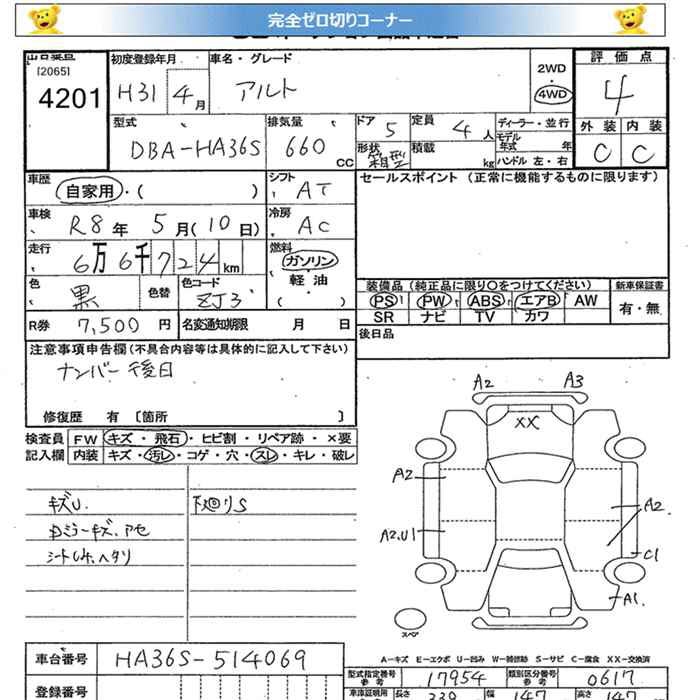 完全ゼロ切りコーナー
[2065]
4201
初度登録年月
H31 4月
車名・グレード
アルト
2WD
・
4WD
評価点
4
外装 内装
C C
型式
DBA-HA36S
排気量
660 CC
ドア 5
定員 4人
ディーラー・並行
モデル年式 年
形状 箱型
積載 kg
ハンドル 左・右
車歴
自家用・( )
シフト
AT
セールスポイント (正常に機能するものに限ります)
車検
R8年 5月(10日)
冷房
AC
走行
6万6千724km
燃料
ガソリン
軽油
( )
色
黒
色替
色コード
ZJ3
装備品 (純正品に限り○をつけてください)
新車保証書
PS PW ABS エアB AW
SR ナビ TV カワ
有・無
R券 7,500円
名変通知期限 月 日
後日品
注意事項申告欄(不具合内容等は具体的に記入して下さい)
ナンバー後日
修復歴 有 〔箇所 〕
検査員記入欄
FW キズ・飛石・ヒビ割・リペア跡・×要
内装 キズ・汚レ・コゲ・穴・スレ・キレ・破レ
キズU.
下廻りS
ミラーキズ.アセ
シートUチ.ヘタリ
A2 A3
XX
A2
A2
A2.U1
C1
A1
スペア
A-キズ E-エクボ U-凹み W-補修跡 S-サビ C-腐食 XX-交換済
車台番号 HA36S-514069
登録番号
型式指定番号参考 17954
類別区分番号参考 0617
車庫証明用
長さ 339
幅 147
高さ 147